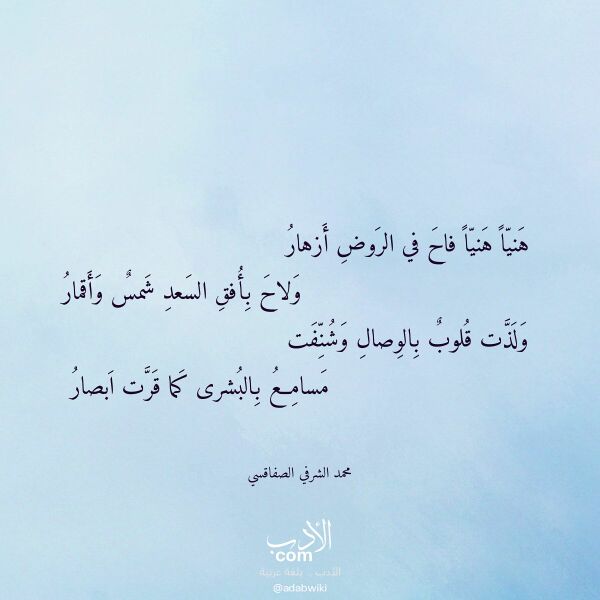 هَنيّاً هَنيّاً فاحَ في الرَوضِ أَزهارُ
وَلاحَ بِأُفقِ السَعدِ شَمسٌ وَأَقمارُ
وَلَذَّت قُلوبٌ بِالوِصالِ وَشُنِّفَت
مَسامِعُ بِالبُشرى كَما قَرَّت اَبصارُ
محمد الشرفي الصفاقسي
الأدب
com
الأدب .. بلغة عربية
@adabwiki